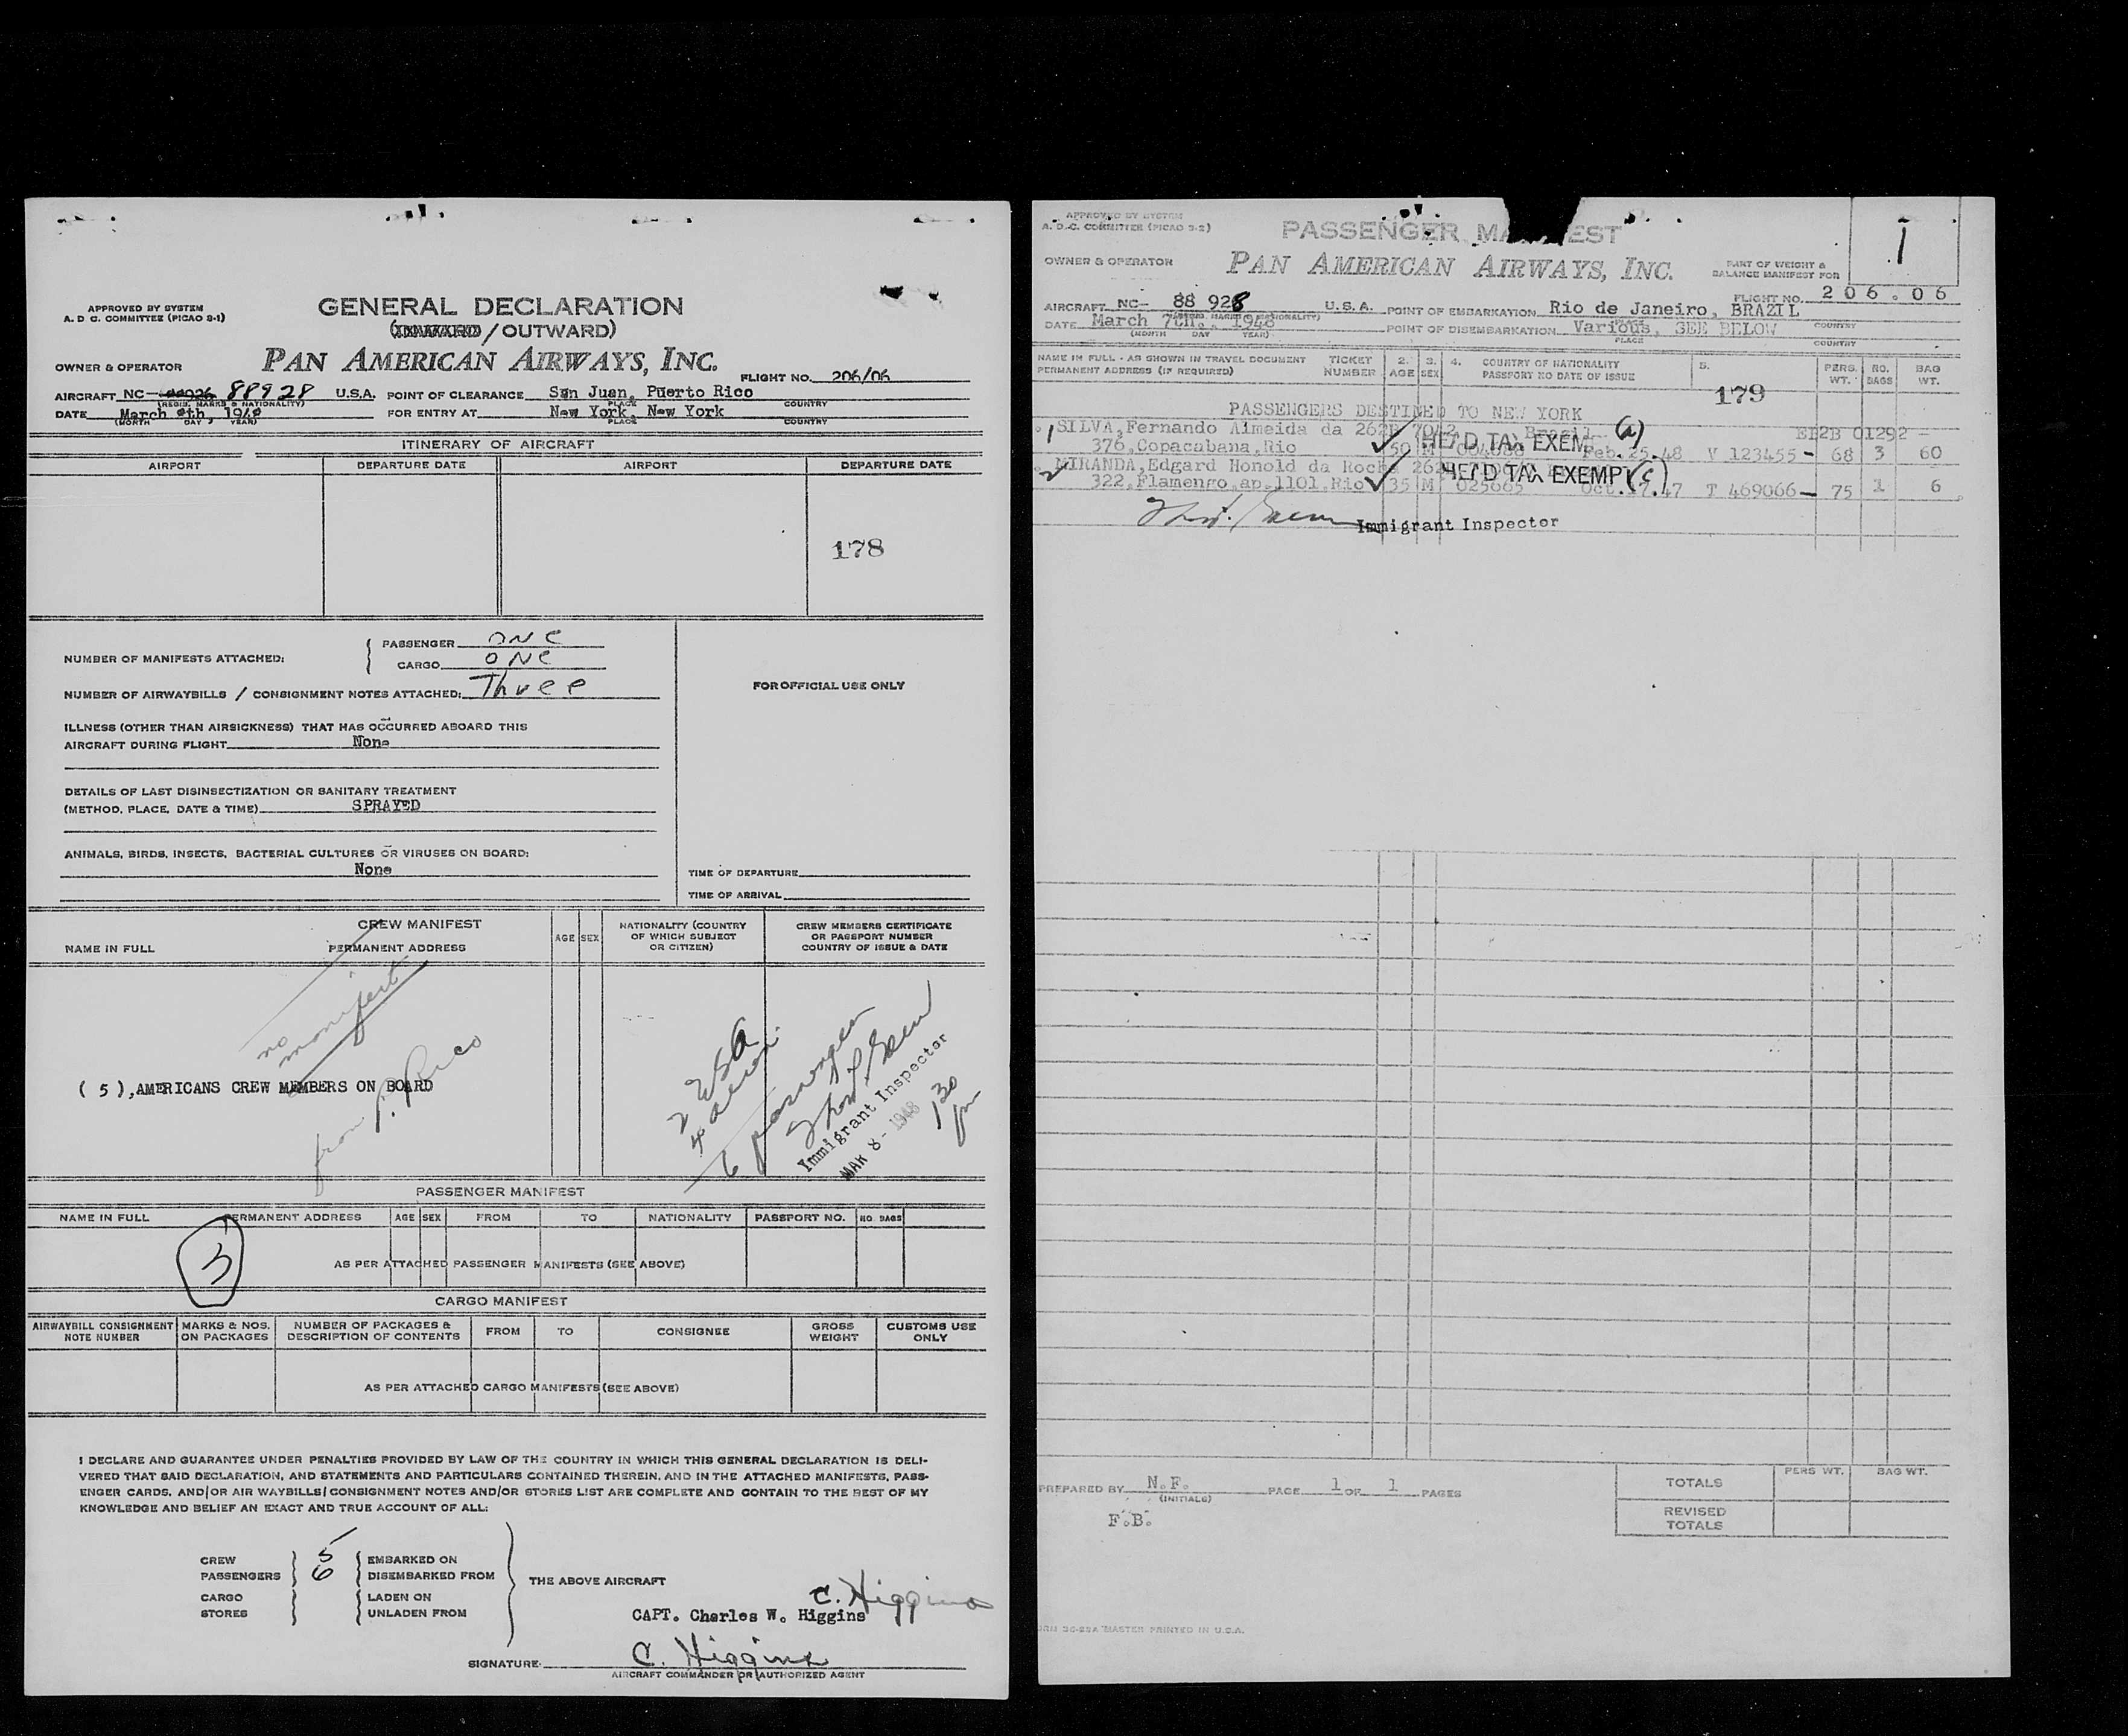 APPROVED BY SYSTEM
A. D C. COMMITTEE (PICAO 3-1)
GENERAL DECLARATION
(INWARD/OUTWARD)
OWNER & OPERATOR
PAN AMERICAN AIRWAYS, INC.
FLIGHT NO. 206/06
AIRCRAFT NC- 88928 U.S.A. POINT OF CLEARANCE San Juan, Puerto Rico
(REGIS. MARKS & NATIONALITY) PLACE COUNTRY
DATE March 8th, 1948 FOR ENTRY AT New York, New York
(MONTH DAY YEAR) PLACE COUNTRY
ITINERARY OF AIRCRAFT
AIRPORT DEPARTURE DATE AIRPORT DEPARTURE DATE
178
NUMBER OF MANIFESTS ATTACHED: PASSENGER ONE
CARGO ONE
NUMBER OF AIRWAYBILLS / CONSIGNMENT NOTES ATTACHED: Three
FOR OFFICIAL USE ONLY
ILLNESS (OTHER THAN AIRSICKNESS) THAT HAS OCCURRED ABOARD THIS
AIRCRAFT DURING FLIGHT None
DETAILS OF LAST DISINSECTIZATION OR SANITARY TREATMENT
(METHOD, PLACE, DATE & TIME) SPRAYED
ANIMALS, BIRDS, INSECTS, BACTERIAL CULTURES OR VIRUSES ON BOARD:
None
TIME OF DEPARTURE
TIME OF ARRIVAL
CREW MANIFEST
NAME IN FULL PERMANENT ADDRESS AGE SEX NATIONALITY (COUNTRY OF WHICH SUBJECT OR CITIZEN) CREW MEMBERS CERTIFICATE OR PASSPORT NUMBER COUNTRY OF ISSUE & DATE
no manifest
from P. Rico
( 5 ),AMERICANS CREW MEMBERS ON BOARD
2 USA
4 aliens
6 passenger
Immigrant Inspector
MAR 8 - 1948
130 pm
PASSENGER MANIFEST
NAME IN FULL PERMANENT ADDRESS AGE SEX FROM TO NATIONALITY PASSPORT NO. NO. BAGS
AS PER ATTACHED PASSENGER MANIFESTS (SEE ABOVE)
CARGO MANIFEST
AIRWAYBILL CONSIGNMENT NOTE NUMBER MARKS & NOS. ON PACKAGES NUMBER OF PACKAGES & DESCRIPTION OF CONTENTS FROM TO CONSIGNEE GROSS WEIGHT CUSTOMS USE ONLY
AS PER ATTACHED CARGO MANIFESTS (SEE ABOVE)
I DECLARE AND GUARANTEE UNDER PENALTIES PROVIDED BY LAW OF THE COUNTRY IN WHICH THIS GENERAL DECLARATION IS DELI-
VERED THAT SAID DECLARATION, AND STATEMENTS AND PARTICULARS CONTAINED THEREIN, AND IN THE ATTACHED MANIFESTS, PASS-
ENGER CARDS, AND/OR AIR WAYBILLS/CONSIGNMENT NOTES AND/OR STORES LIST ARE COMPLETE AND CONTAIN TO THE BEST OF MY
KNOWLEDGE AND BELIEF AN EXACT AND TRUE ACCOUNT OF ALL:
CREW 5 EMBARKED ON
PASSENGERS 6 DISEMBARKED FROM
THE ABOVE AIRCRAFT
CARGO LADEN ON
STORES UNLADEN FROM
C. Higgins
CAPT. Charles W. Higgins
SIGNATURE C. Higgins
AIRCRAFT COMMANDER OR AUTHORIZED AGENT
APPROVED BY SYSTEM
A. D. C. COMMITTEE (PICAO 3-2)
PASSENGER MA EST
1
OWNER & OPERATOR
PAN AMERICAN AIRWAYS, INC.
PART OF WEIGHT & BALANCE MANIFEST FOR
FLIGHT NO. 206.06
AIRCRAFT NC- 88 928 U.S.A. POINT OF EMBARKATION Rio de Janeiro, BRAZIL
DATE March 7th., 1948 POINT OF DISEMBARKATION Various, SEE BELOW
(MONTH DAY YEAR) PLACE COUNTRY
NAME IN FULL - AS SHOWN IN TRAVEL DOCUMENT TICKET NUMBER 2. AGE 3. SEX 4. COUNTRY OF NATIONALITY 5. PERS. WT. NO. BAGS BAG WT.
PERMANENT ADDRESS (IF REQUIRED) PASSPORT NO DATE OF ISSUE
179
PASSENGERS DESTINED TO NEW YORK
1 SILVA, Fernando Almeida da 262B 7042 Brasil (a) EB2B 01292 -
376, Copacabana, Rio 50 M HEAD TAX EXEM Feb.25.48 V 123455 - 68 3 60
2 MIRANDA, Edgard Honold da Rocha
322, Flamengo, ap.1101, Rio 35 M 025665 HEAD TAX EXEMPT (c) Oct.17.47 T 469066 - 75 1 6
Immigrant Inspector
PREPARED BY N.F. PAGE 1 OF 1 PAGES
(INITIALS)
F.B.
TOTALS PERS WT. BAG WT.
REVISED TOTALS
FORM DC-25A MASTER PRINTED IN U.S.A.